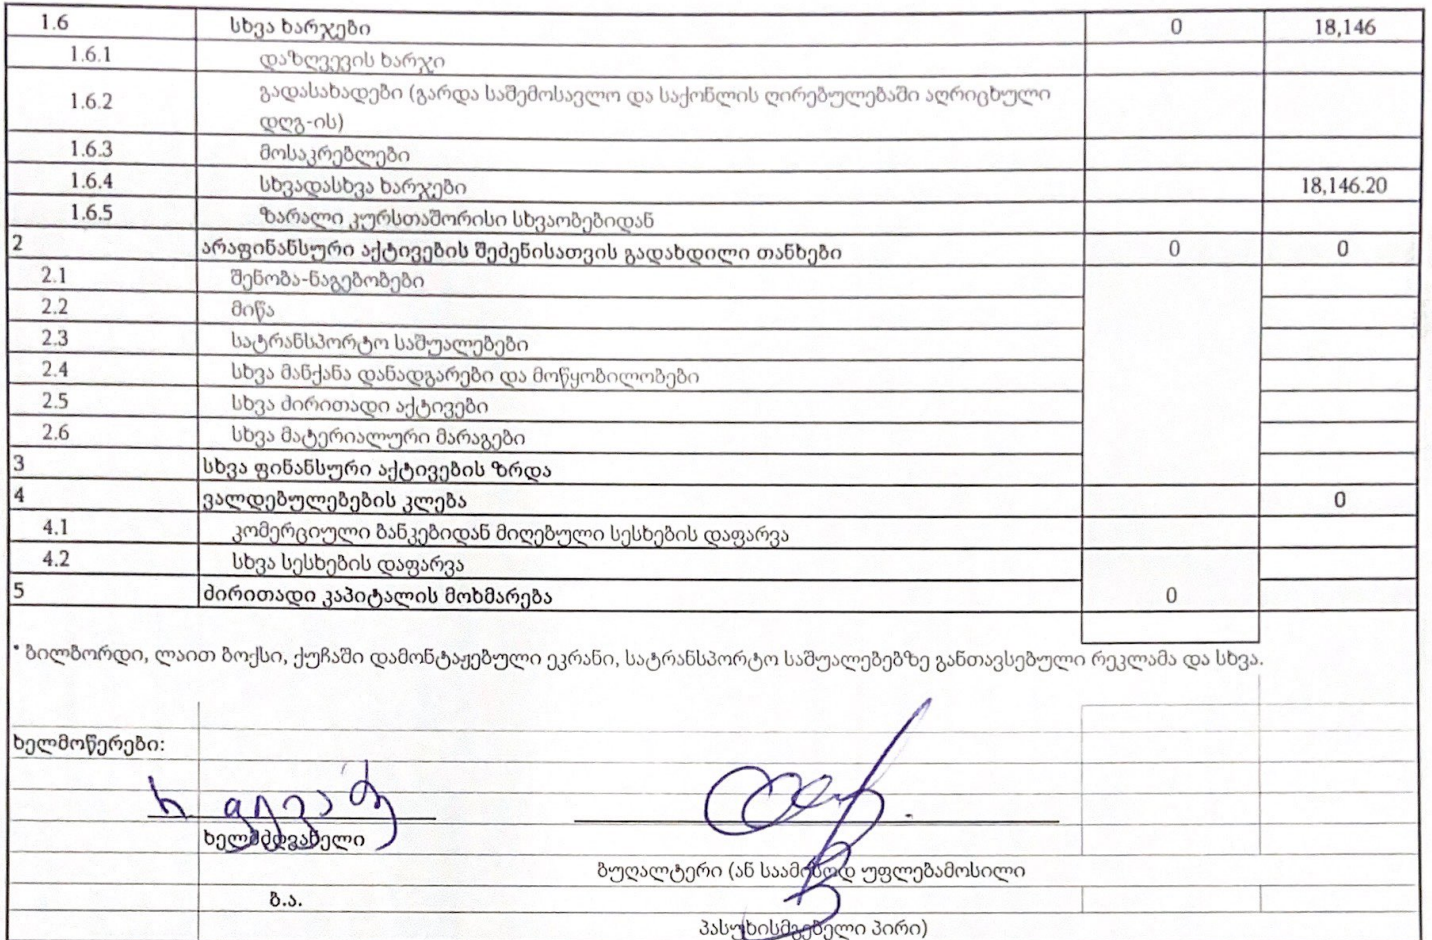 1.6 სხვა ხარჯები 0 18,146
1.6.1 დაზღვევის ხარჯი
1.6.2 გადასახადები (გარდა საშემოსავლო და საქონლის ღირებულებაში აღრიცხული
დღგ-ის)
1.6.3 მოსაკრებლები
1.6.4 სხვადასხვა ხარჯები 18,146.20
1.6.5 ზარალი კურსთაშორისი სხვაობებიდან
2 არაფინანსური აქტივების შეძენისათვის გადახდილი თანხები 0 0
2.1 შენობა-ნაგებობები
2.2 მიწა
2.3 სატრანსპორტო საშუალებები
2.4 სხვა მანქანა დანადგარები და მოწყობილობები
2.5 სხვა ძირითადი აქტივები
2.6 სხვა მატერიალური მარაგები
3 სხვა ფინანსური აქტივების ზრდა
4 ვალდებულებების კლება 0
4.1 კომერციული ბანკებიდან მიღებული სესხების დაფარვა
4.2 სხვა სესხების დაფარვა
5 ძირითადი კაპიტალის მოხმარება 0
* ბილბორდი, ლაით ბოქსი, ქუჩაში დამონტაჟებული ეკრანი, სატრანსპორტო საშუალებებზე განთავსებული რეკლამა და სხვა.
ხელმოწერები:
ხელმძღვანელი
ბუღალტერი (ან საამისოდ უფლებამოსილი
ბ.ა.
პასუხისმგებელი პირი)